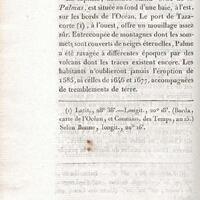 Palmas, est située au fond d'une baie, à l'est,
sur les bords de l'Océan. Le port de Taza-
corte (1), à l'ouest, offre un mouillage assez
sûr. Entrecoupée de montagnes dont les som-
mets sont couverts de neiges éternelles, Palme
a été ravagée à différentes époques par des
volcans dont les traces existent encore. Les
habitants n'oublieront jamais l'éruption de
1585, ni celles de 1646 et 1677, accompagnées
de tremblements de terre.
(1) Latit., 28° 38'.—Longit., 20° 18'. (Borda,
carte de l'Océan, et Connaiss. des Temps, an 15.)
Selon Bonne, longit., 20° 16'.